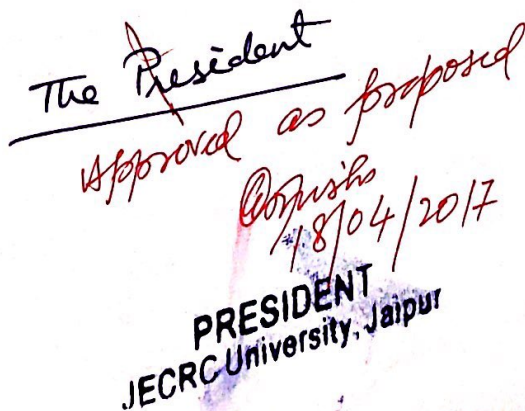 The President
Approved as proposed
18/04/2017
PRESIDENT
JECRC University, Jaipur